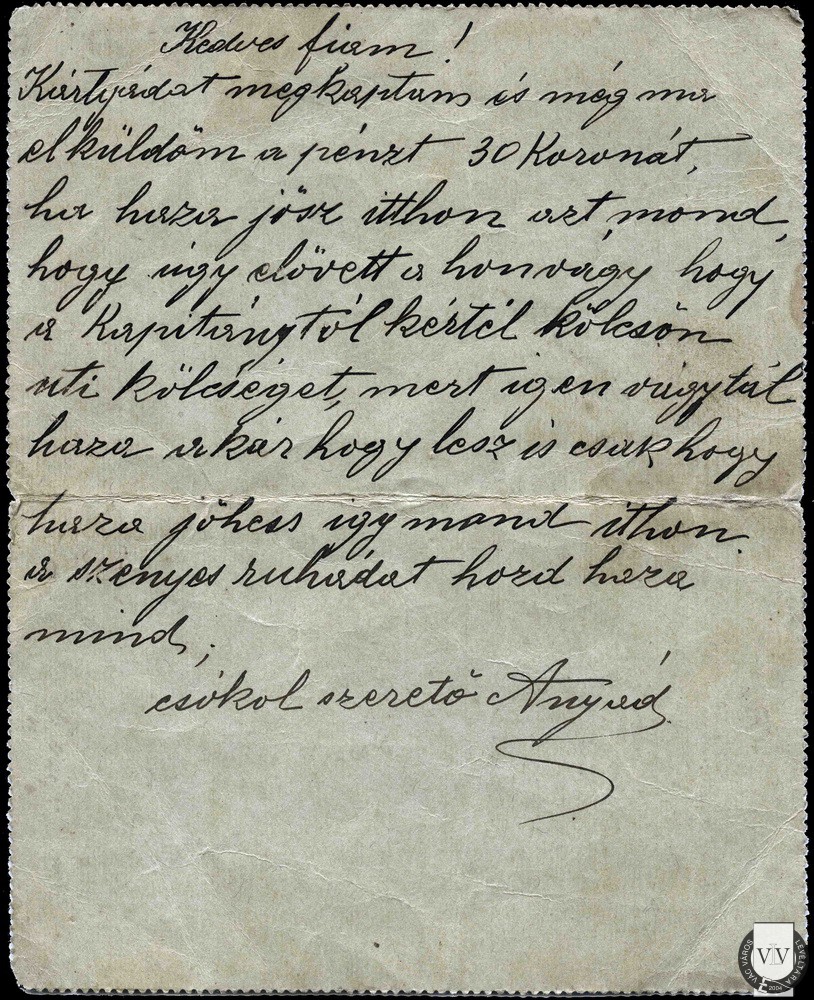 Kedves fiam!
Kártyádat megkaptam és még ma
elküldöm a pénzt 30 Koronát,
ha haza jösz itthon azt mond,
hogy úgy elövett a honvágy hogy
a Kapitánytól kértél kölcsön
uti kölcséget, mert igen vágytál
haza akár hogy lesz is csak hogy
haza jöhess igy mond ithon.
a szenyes ruhádat hozd haza
mind;
csókol szerető Anyád
VÁC VÁROS LEVÉLTÁRA
VLV
2004